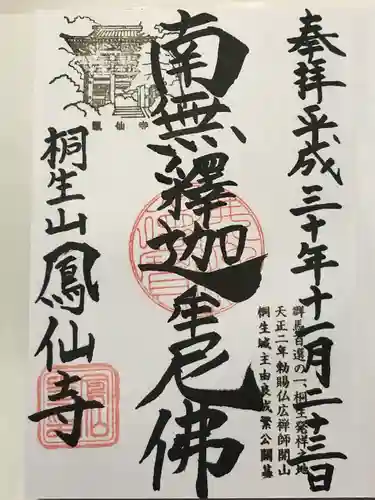 奉拝 平成三十年十一月二十三日
群馬百選の一、桐生発祥之地
天正二年勅賜仏広禅師開山
桐生城主由良成繁公開基
南無釋迦牟尼佛
鳳仙寺
桐生山鳳仙寺